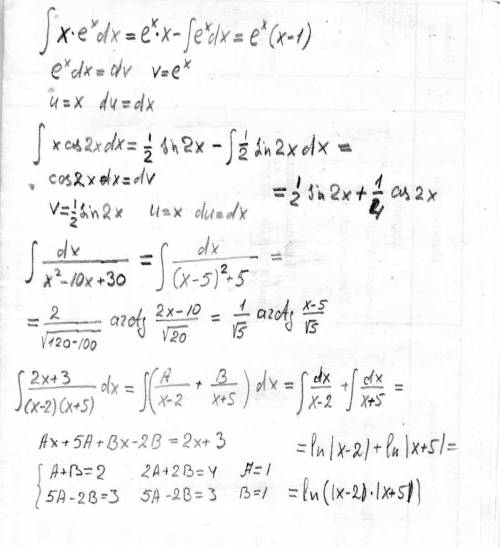 ∫ x·eˣdx = eˣ·x − ∫eˣdx = eˣ(x−1)
eˣdx = dv v = eˣ
u = x du = dx
∫ x cos2x dx = 1/2 sin2x − ∫ 1/2 sin2x dx =
cos2x dx = dv
= 1/2 sin2x + 1/4 cos2x
v = 1/2 sin2x u = x du = dx
∫ dx/(x²−10x+30) = ∫ dx/((x−5)²+5) =
= 2/√(120−100) arctg (2x−10)/√20 = 1/√5 arctg (x−5)/√5
∫ (2x+3)/((x−2)(x+5)) dx = ∫(A/(x−2) + B/(x+5)) dx = ∫ dx/(x−2) + ∫ dx/(x+5) =
Ax+5A+Bx−2B = 2x+3
= ln|x−2| + ln|x+5| =
{ A+B=2 2A+2B=4 A=1
5A−2B=3 5A−2B=3 B=1
= ln(|x−2|·|x+5|)